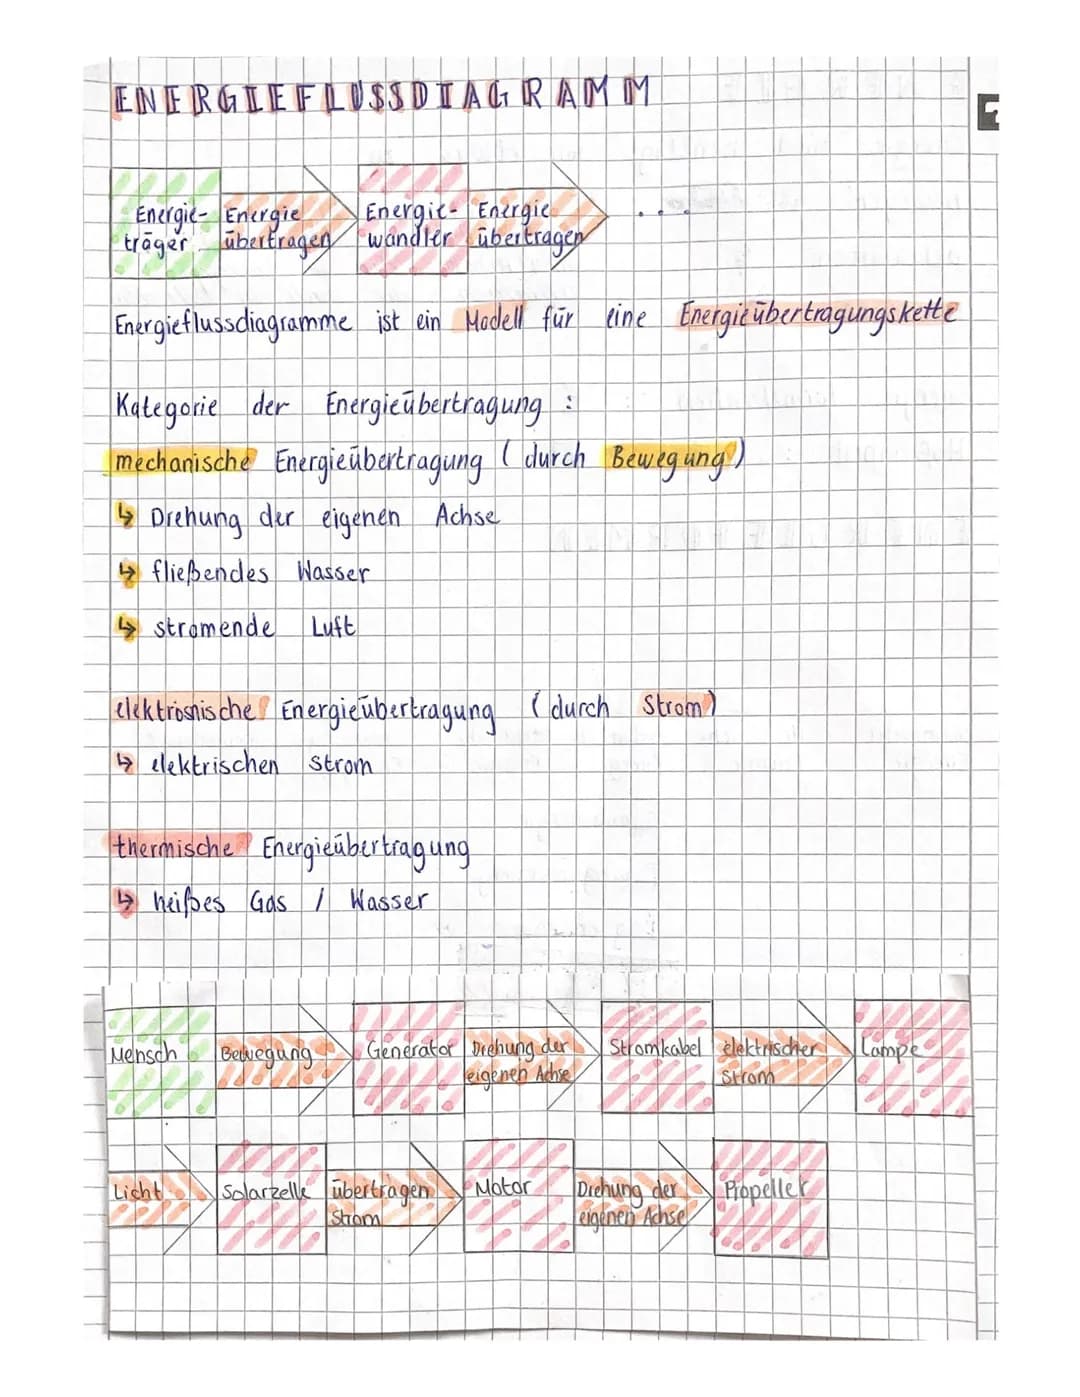 ENERGIEFLUSSDIAGRAMM
Energie- Energie Energie- Energie
träger übertragen wandler übertragen ...
Energieflussdiagramme ist ein Modell für eine Energieübertragungskette
Kategorie der Energieübertragung :
mechanische Energieübertragung ( durch Bewegung )
↳ Drehung der eigenen Achse
↳ fließendes Wasser
↳ stromende Luft
elektrosnische Energieübertragung ( durch Strom )
↳ elektrischen Strom
thermische Energieübertragung
↳ heißes Gas / Wasser
Mensch Bewegung Generator Drehung der Stromkabel elektrischer Lampe
eigenen Achse Strom
Licht Solarzelle übertragen Motor Drehung der Propeller
Strom eigenen Achse